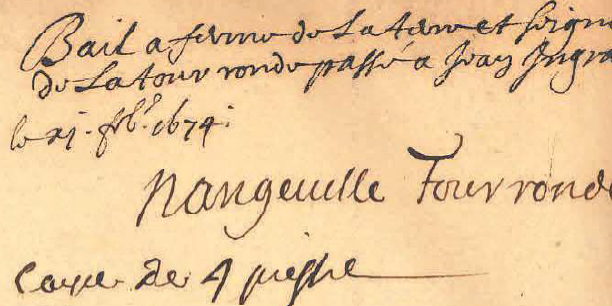 Bail a ferme de La terre et seign
de La tour ronde passé a Jean Ingra
le 21. 1674.
Nangeuille Tour ronde
de 4